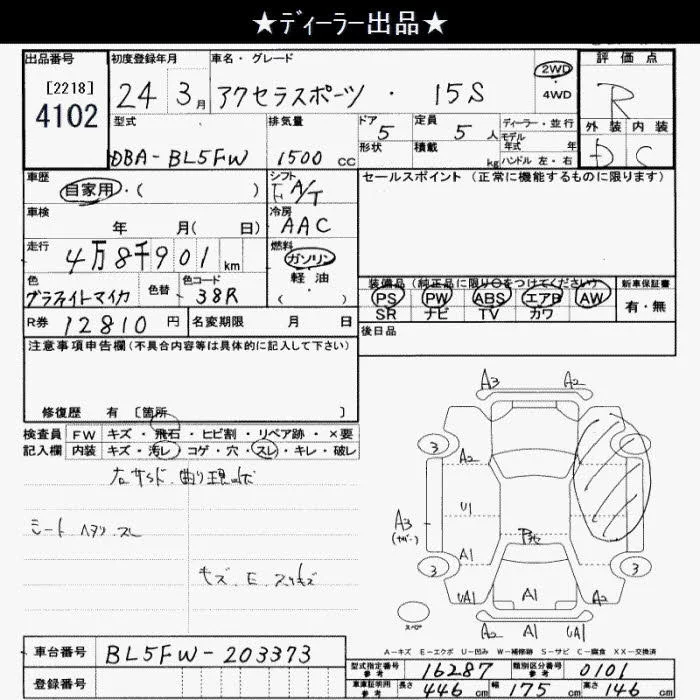 ★ディーラー出品★
出品番号
[2218]
4102
初度登録年月
24年 3月
車名・グレード
アクセラスポーツ ・ 15S
2WD
・
4WD
評価点
R
外装 内装
D C
型式
DBA-BL5FW
排気量
1500 cc
ドア
5
定員
5人
形状
積載
kg
ディーラー・並行
モデル
年式 年
ハンドル 左・右
車歴
自家用・( )
シフト
F A/T
セールスポイント (正常に機能するものに限ります)
車検
年 月( 日)
冷房
AAC
走行
4万8千901km
燃料
ガソリン
軽油
・
( )
色
グラファイトマイカ
色替
カラーコード
38R
装備品 (純正品に限り○をつけてください)
PS PW ABS エアB AW
SR ナビ TV カワ
新車保証書
有・無
R券 12810円
名変期限 月 日
後日品
注意事項申告欄(不具合内容等は具体的に記入して下さい)
修復歴 有 [箇所 ]
検査員 FW キズ・飛石・ヒビ割・リペア跡・×要
記入欄 内装 キズ・汚レ・コゲ・穴・スレ・キレ・破レ
シート ヘタリ スレ
キズ・E・スリキズ
A3 A2
3 3
A2
U1
A3
A1
3 3
UA1 A1 A2
A2 A1 UA1
スペア
A-キズ E-エクボ U-凹み W-補修跡 S-サビ C-腐食 XX-交換済
車台番号 BL5FW-203373
登録番号
型式指定番号
参考
16287
類別区分番号
参考
0101
車庫証明用
参考
長さ 446cm 幅 175cm 高さ 146cm